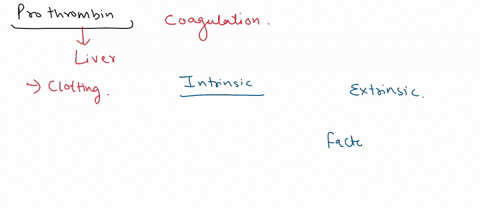 Prothrombin
Coagulation.
Liver
→ Clotting.
Intrinsic
Extrinsic.
Facto